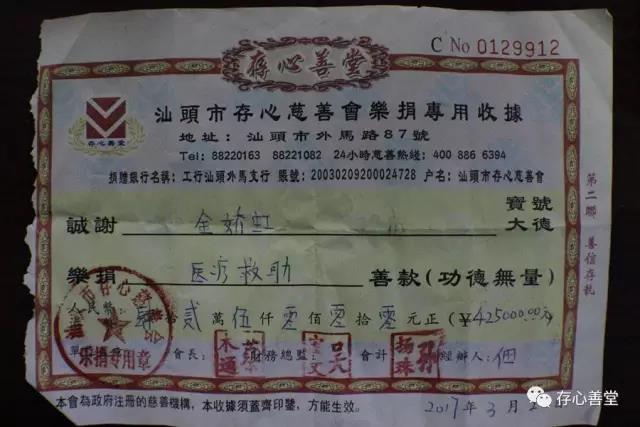 C No 0129912
存心善堂
存心善堂
汕頭市存心慈善會樂捐專用收據
地址：汕頭市外馬路87號
Tel: 88220163 88221082 24小時慈善熱綫: 400 886 6394
捐贈銀行名稱：工行汕頭外馬支行 賬號：20030209200024728 户名：汕頭市存心慈善會
第二聯 善信存執
誠謝 金娇虹 寶號
大德
樂捐 医疗救助 善款(功德無量)
人民幣 肆拾貳萬伍仟零佰零拾零元正(¥425000.00元)
乐捐专用章
會長： 財務總監 會計 經辦人:佃
本會為政府注冊的慈善機構，本收據須蓋齊印鑒，方能生效。 2017年3月2
存心善堂